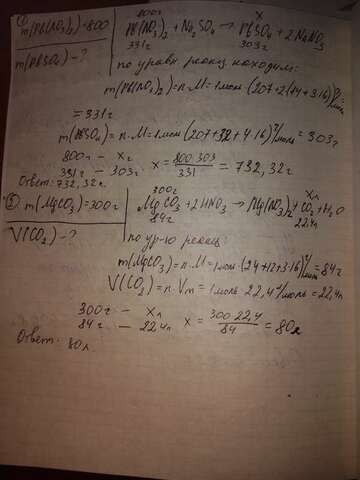 ① m(Pb(NO3)2)=800
m(PbSO4) - ?
800г x
Pb(NO3)2 + Na2SO4 → PbSO4 + 2NaNO3
331г 303г
по уравн. реакц находим:
m(Pb(NO3)2)=n·M=1моль(207+2(14+3·16)г/моль
=331г
m(PbSO4)=n·M=1моль(207+32+4·16)г/моль=303г
800г - xг
331г - 303г x = 800·303/331 = 732,32г
Ответ: 732,32г.
② m(MgCO3)=300г
V(CO2) - ?
300г xл
MgCO3 + 2HNO3 → Mg(NO3)2 + CO2 + H2O
84г 22,4л
по ур-ю реакц:
m(MgCO3)=n·M=1моль(24+12+3·16)г/моль=84г
V(CO2)=n·Vm=1моль·22,4л/моль=22,4л
300г - xл
84г - 22,4л x = 300·22,4/84 = 80л
Ответ: 80л